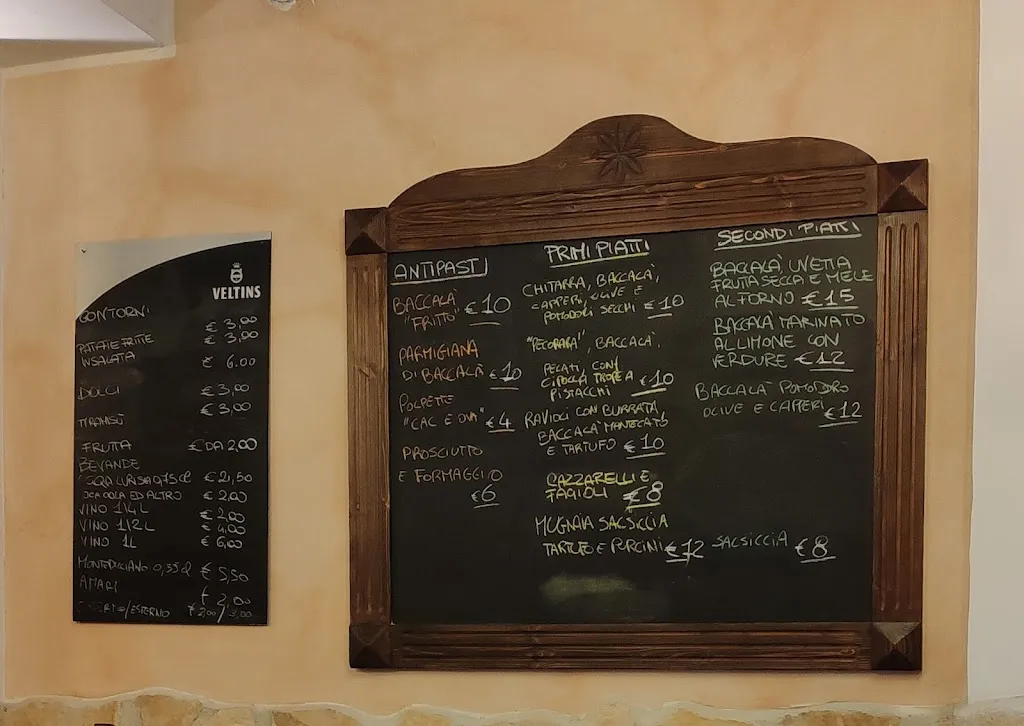 VELTINS
CONTORNI
€ 3,00
PATATE FRITTE € 3,00
INSALATA € 6.00
DOLCI € 3,00
TIRAMISÙ € 3,00
FRUTTA € DA 2,00
BEVANDE
0,75 cl € 2,50
COCA COLA ED ALTRO € 2,00
VINO 1/4 L € 2,00
VINO 1/2 L € 4,00
VINO 1L € 6,00
MONTEPULCIANO 0,35 cl € 5,50
AMARI € 2,00
/ESTERNO € 2,00/3,00
ANTIPASTI
BACCALÀ
"FRITTO" €10
PARMIGIANA
DI BACCALÀ €10
POLPETTE
"CAC E OVA" €4
PROSCIUTTO
E FORMAGGIO
€6
PRIMI PIATTI
CHITARRA, BACCALÀ,
CAPPERI, OLIVE E
POMODORI SECCHI €10
"PECORARA", BACCALÀ,
PELATI, CON
CIPOLLA TROPEA €10
PISTACCHI
RAVIOLI CON BURRATA,
BACCALÀ MANTECATO
E TARTUFO €10
CAZZARELLI E
FAGIOLI €8
MUGNAIA SALSICCIA
TARTUFO E PORCINI €12
SECONDI PIATTI
BACCALÀ UVETTA
FRUTTA SECCA E MELE
AL FORNO €15
BACCALÀ MARINATO
AL LIMONE CON
VERDURE €12
BACCALÀ POMODORO
OLIVE E CAPPERI €12
SALSICCIA €8